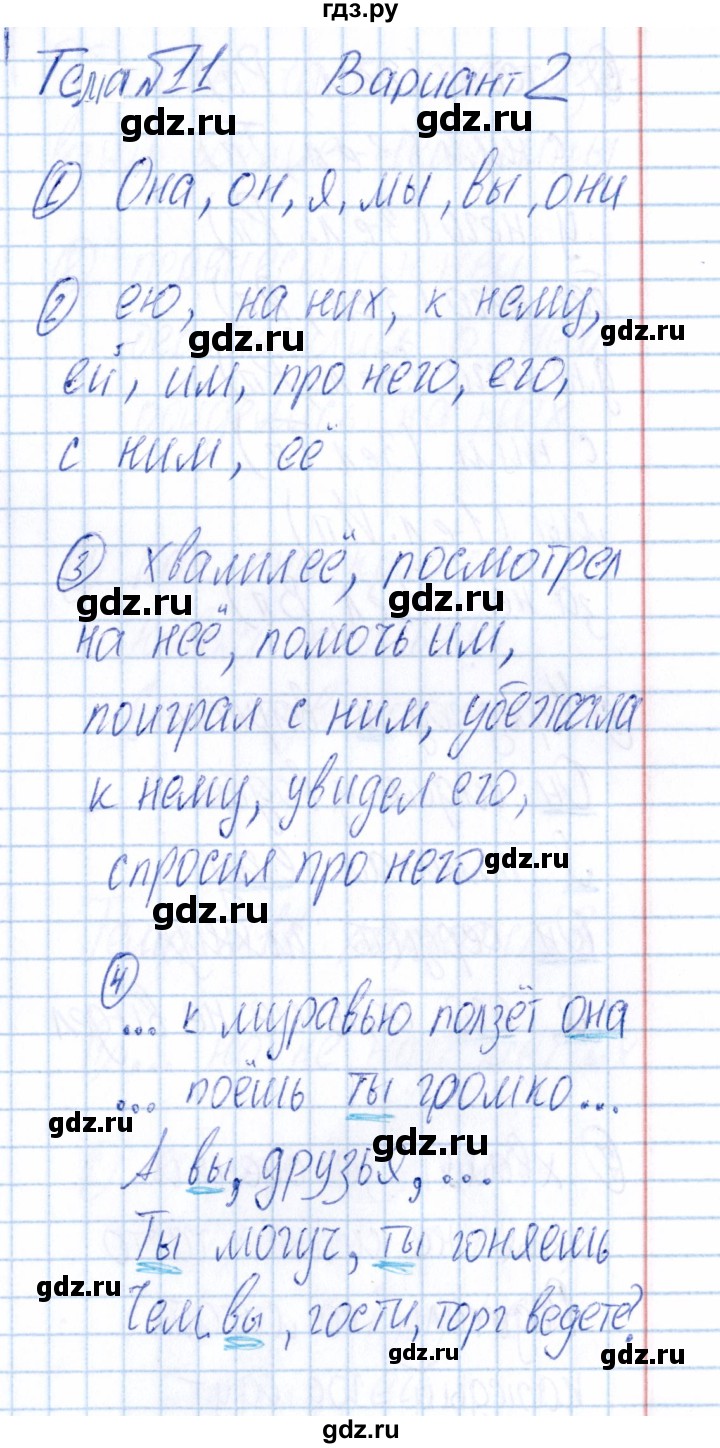 гдз.ру
Тема №11 Вариант 2
gdz.ru
gdz.ru
① Она, он, я, мы, вы, они
gdz.ru
② ею, на них, к нему,
gdz.ru
gdz.ru
ей, им, про него, его,
с ним, её
③ хвалил её, посмотрел
gdz.ru
gdz.ru
на неё, помочь им,
поиграл с ним, убежала
к нему, увидел его,
спросил про него
gdz.ru
gdz.ru
④
... к муравью ползёт она
... поёшь ты громко...
gdz.ru
gdz.ru
А вы, друзья, ...
Ты могуч, ты гоняешь
gdz.ru
Чем вы, гости, торг ведете?
gdz.ru
gdz.ru
gdz.ru